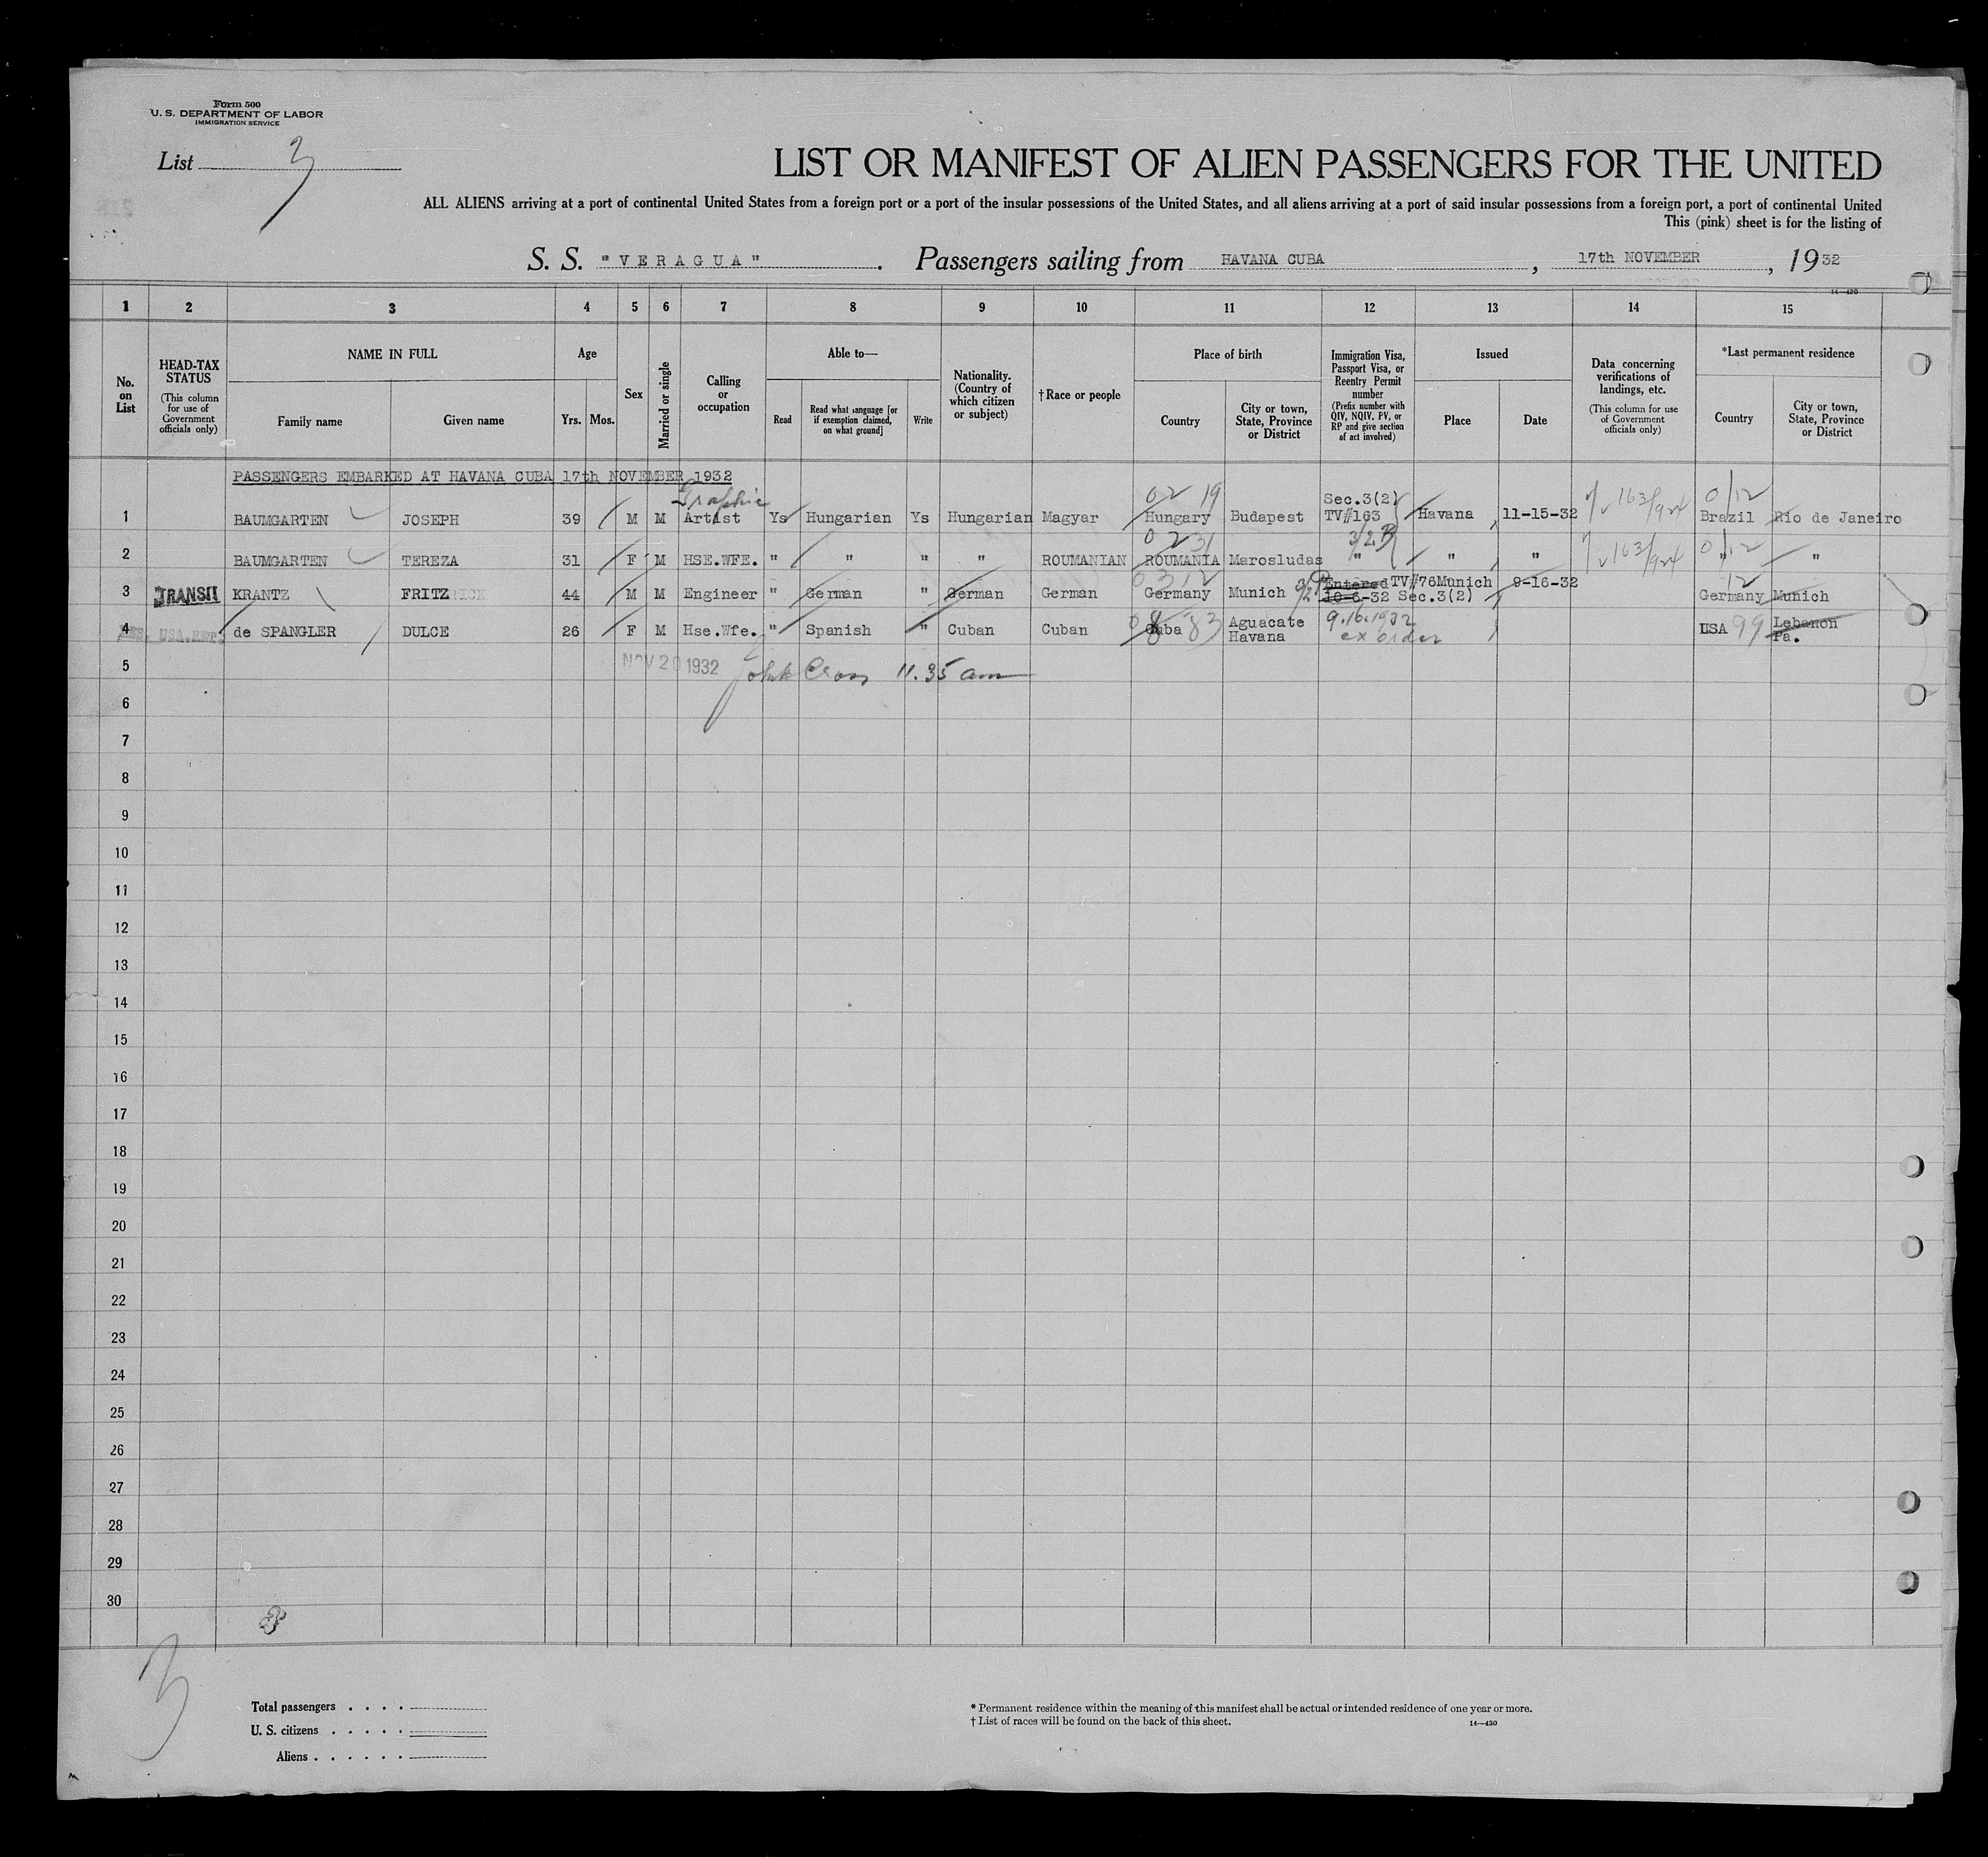 Form 500
U. S. DEPARTMENT OF LABOR
IMMIGRATION SERVICE
List 3
LIST OR MANIFEST OF ALIEN PASSENGERS FOR THE UNITED
ALL ALIENS arriving at a port of continental United States from a foreign port or a port of the insular possessions of the United States, and all aliens arriving at a port of said insular possessions from a foreign port, a port of continental United
This (pink) sheet is for the listing of
S. S. "VERAGUA". Passengers sailing from HAVANA CUBA, 17th NOVEMBER, 1932
14—430
1 2 3 4 5 6 7 8 9 10 11 12 13 14 15
No. on List
HEAD-TAX STATUS
(This column for use of Government officials only)
NAME IN FULL
Family name
Given name
Age
Yrs. Mos.
Sex
Married or single
Calling or occupation
Able to—
Read
Read what language [or if exemption claimed, on what ground]
Write
Nationality. (Country of which citizen or subject)
† Race or people
Place of birth
Country
City or town, State, Province or District
Immigration Visa, Passport Visa, or Reentry Permit number
(Prefix number with QIV, NQIV, PV, or RP and give section of act involved)
Issued
Place
Date
Data concerning verifications of landings, etc.
(This column for use of Government officials only)
*Last permanent residence
Country
City or town, State, Province or District
PASSENGERS EMBARKED AT HAVANA CUBA 17th NOVEMBER 1932
Graphic 02 19 Sec.3(2) 0/12
1 BAUMGARTEN JOSEPH 39 M M Artist Ys Hungarian Ys Hungarian Magyar Hungary Budapest TV#163 Havana 11-15-32 Brazil Rio de Janeiro
02 31 3/2B 0/12
2 BAUMGARTEN TEREZA 31 F M HSE.WFE. " " " " ROUMANIAN ROUMANIA Marosludas " " " " "
0312 Entered TV#76 Munich 9-16-32 12
3 TRANSIT KRANTZ FRITZ 44 M M Engineer " German " German German Germany Munich 10-6-32 Sec.3(2) Germany Munich
4 USA.RET. de SPANGLER DULCE 26 F M Hse.Wfe. " Spanish " Cuban Cuban Cuba 83 Aguacate Havana 9.16.1932 ex order USA 99 Lebanon Pa.
5 NOV 20 1932 Cross 11.35 am
6
7
8
9
10
11
12
13
14
15
16
17
18
19
20
21
22
23
24
25
26
27
28
29
30
3
Total passengers . . . .
U. S. citizens . . . . .
Aliens . . . . . .
* Permanent residence within the meaning of this manifest shall be actual or intended residence of one year or more.
† List of races will be found on the back of this sheet. 14—430